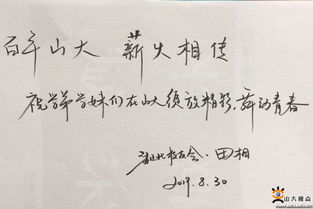 百年山大 薪火相传
祝学弟学妹们在山大绽放精彩，舞动青春
湖北校友会·田相
2019.8.30
山大视点